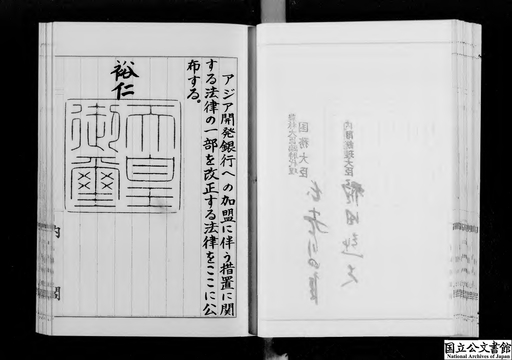 アジア開発銀行への加盟に伴う措置に関
する法律の一部を改正する法律をここに公
布する。
裕仁
天皇
御璽
内閣
内閣総理大臣
福田赳夫
国務大臣
国立公文書館
National Archives of Japan